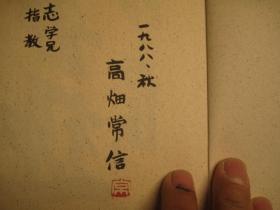 一九八八、秋
高畑常信
志学兄
指教